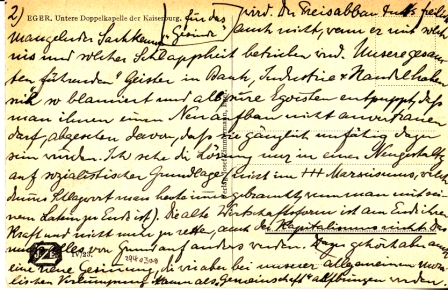 2) EGER. Untere Doppelkapelle der Kaiserburg. (für das wird. Der Preisabbau freilich
mangelnder Sachkenntnis "Gesinde") auch nicht, wenn er mit solcher
und solcher Schlappheit betrieben wird. Unsere gesam-
ten führenden "Geister in Bank, Industrie & Handel haben
sich so blamiert und als pure Egoisten entpuppt, daß
man ihnen einen Neuaufbau nicht anvertrauen
darf, abgesehen davon, daß sie gänzlich unfähig dazu
sein würden. Ich sehe die Lösung nur in einer Neugestaltung
auf sozialistischer Grundlage (nicht im +++ Marxismus,
Schlagwort man heute
zu Ende ist). Die alte Wirtschaftsform ist am Ende ihrer
Kraft und nicht mehr zu retten, auch der Kapitalismus nicht. Es
muß alles von Grund auf anders werden. Dazu gehört aber auch
eine neue Gesinnung, die wir aber bei unserer allgemeinen
als "Gemeinschaft" aufbringen werden.
IV/23. 294 2303